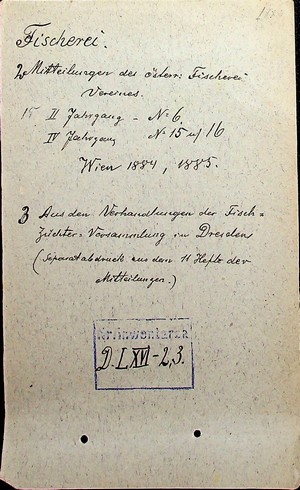 Fischerei.
2 Mitteilungen des österr: Fischerei-
Vereines.
II Jahrgang - No 6.
IV Jahrgang No 15 u 16
Wien 1884, 1885.
3 Aus den Verhandlungen der Fisch=
Züchter-Versammlung in Dresden
(Separatabdruck aus dem 11 Hefte der
Mitteilungen.)
D. LXVI-2,3.